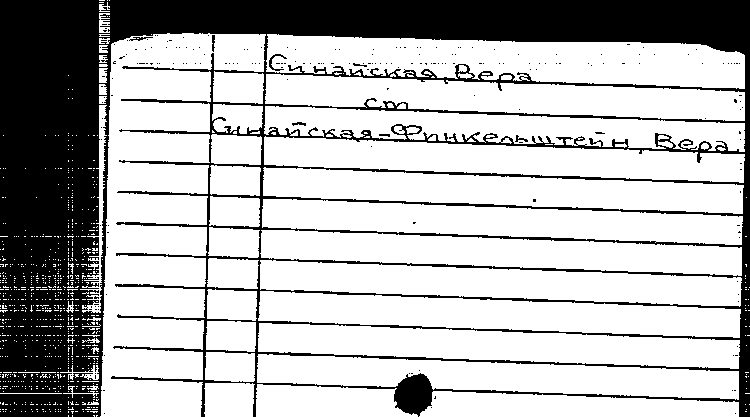 Синайская, Вера
cm
Синайская-Финкельштейн, Вера.